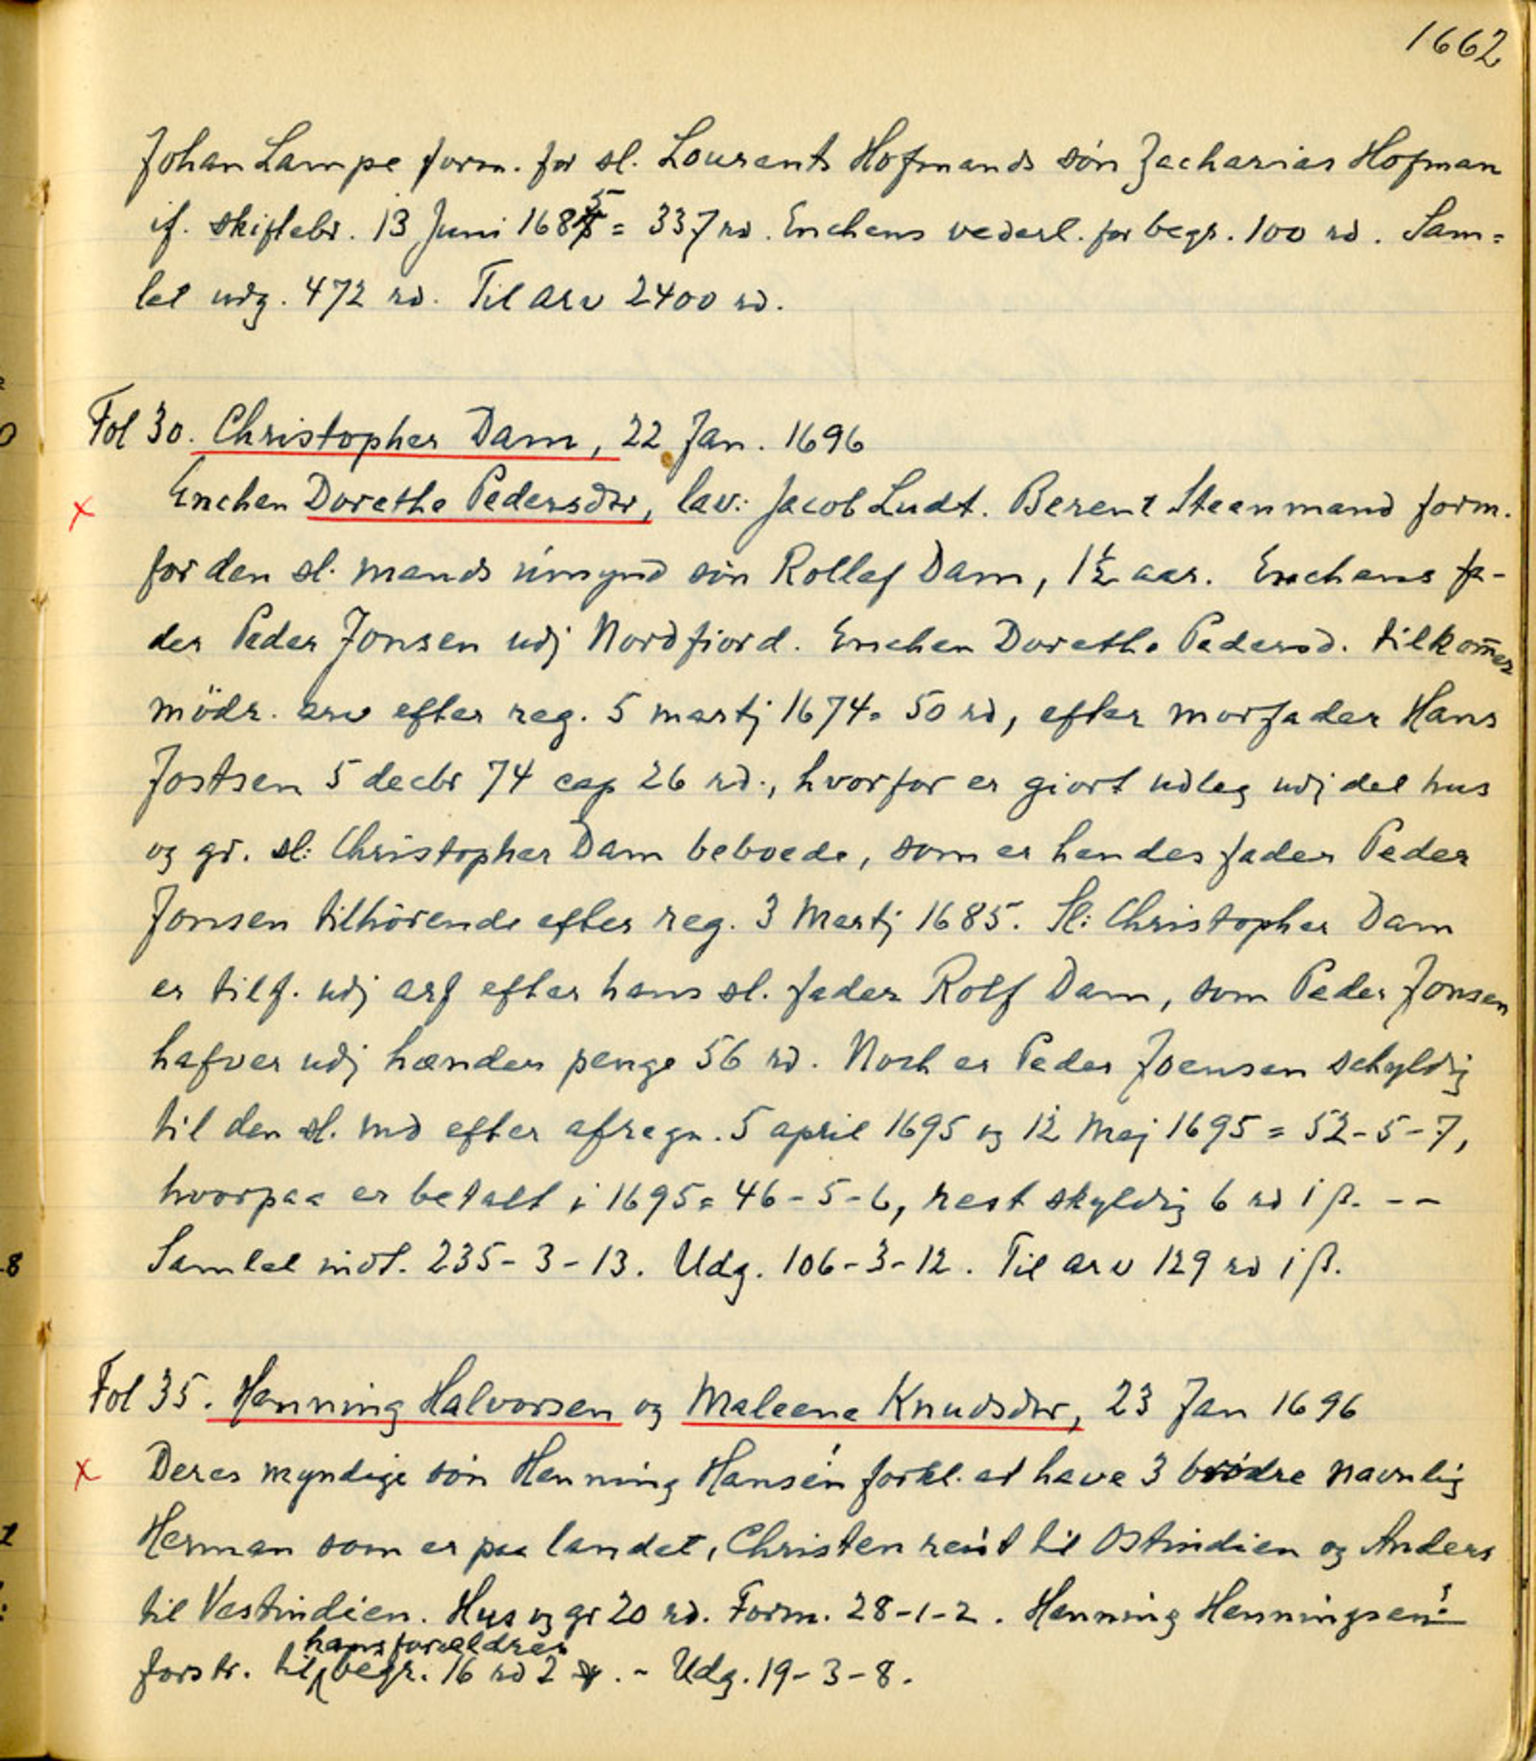 1662
Johan Lampe form. for sl. Lourants Hofmands sön Zacharias Hofman
if. skiftebr. 13 Juni 1685 = 337 rd. Enchens vederl. for begr. 100 rd. Sam=
let udg. 472 rd. Til arv 2400 rd.
Fol 30. Christopher Dam, 22 Jan. 1696
x Enchen Dorethe Pedersdtr, lav: Jacob Ludt. Berent Steenmand form.
for den sl. mands umynd sön Rollef Dam, 1½ aar. Enchens fa-
der Peder Jonsen udj Nordfiord. Enchen Dorethe Pedersd. tilkom̄er
mödr. arv efter reg. 5 martj 1674= 50 rd, efter morfader Hans
Jostsen 5 decbr 74 cap 26 rd., hvorfor er giort udleg udj det hus
og gr. sl: Christopher Dam beboede, som er hendes fader Peder
Jonsen tilhörende efter reg. 3 Martj 1685. Sl: Christopher Dam
er tilf. udj arf efter hans sl. fader Rolf Dam, som Peder Jonsen
hafver udj hænder penge 56 rd. Noch er Peder Joensen schyldig
til den sl. md efter afregn. 5 april 1695 og 12 Maj 1695 = 52-5-7,
hvorpaa er betalt i 1695= 46-5-6, rest skyldig 6 rd 1 β. --
8 Samlet indt. 235-3-13. Udg. 106-3-12. Til arv 129 rd 1 β.
Fol 35. Henning Halvorsen og Maleene Knudsdtr, 23 Jan 1696
x Deres myndige sön Henning Hansen ! forkl. at have 3 brödre navnlig
Herman som er paa landet, Christen reist til Ostindien og Anders
til Vestindien. Hus og gr 20 rd. Form. 28-1-2. Henning Henningsen !
hans forældres
forstr. til begr. 16 rd 2 . - Udg. 19-3-8.